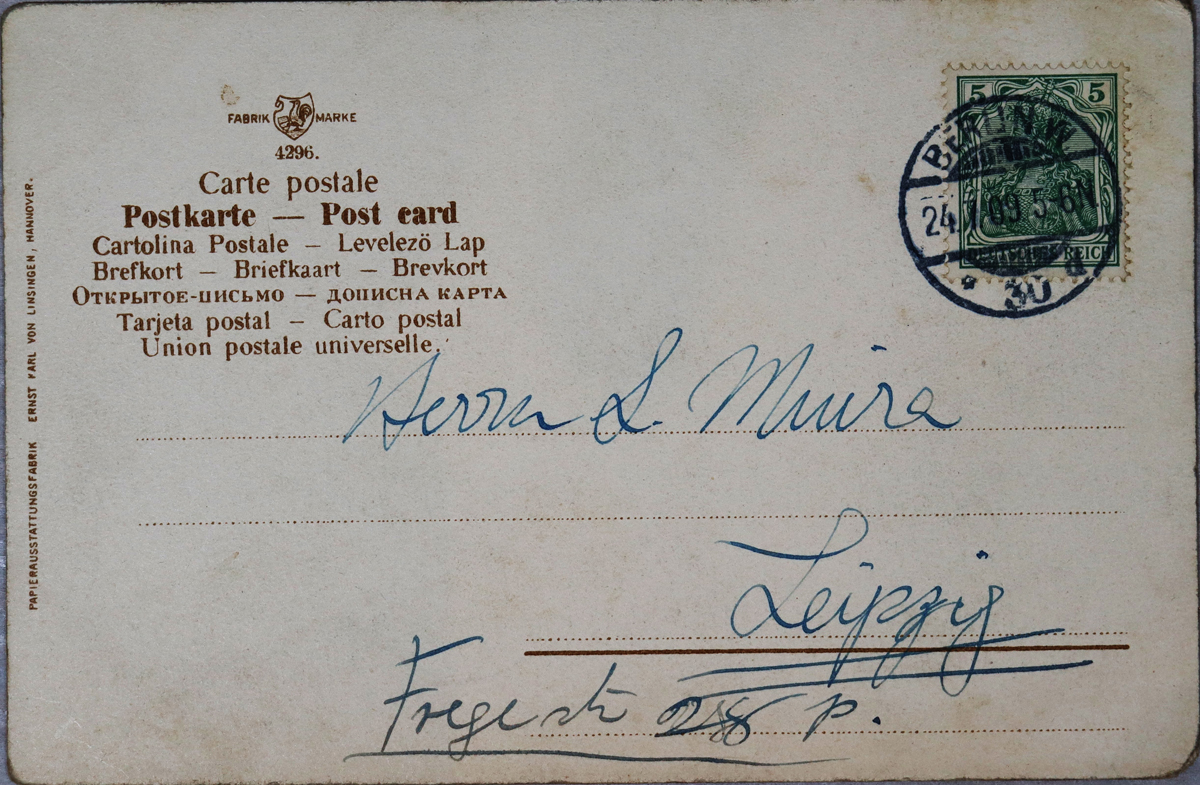 FABRIK MARKE
4296.
Carte postale
Postkarte — Post card
Cartolina Postale — Levelezö Lap
Brefkort — Briefkaart — Brevkort
Открытое-письмо — дописна карта
Tarjeta postal — Carto postal
Union postale universelle.
PAPIERAUSSTATTUNGSFABRIK ERNST KARL VON LINSINGEN, HANNOVER.
5 5
DEUTSCHES REICH
BERLIN W
24. 1.09 5-6N.
* 30 a
Herrn L. Miura
Leipzig
Fregestr p.